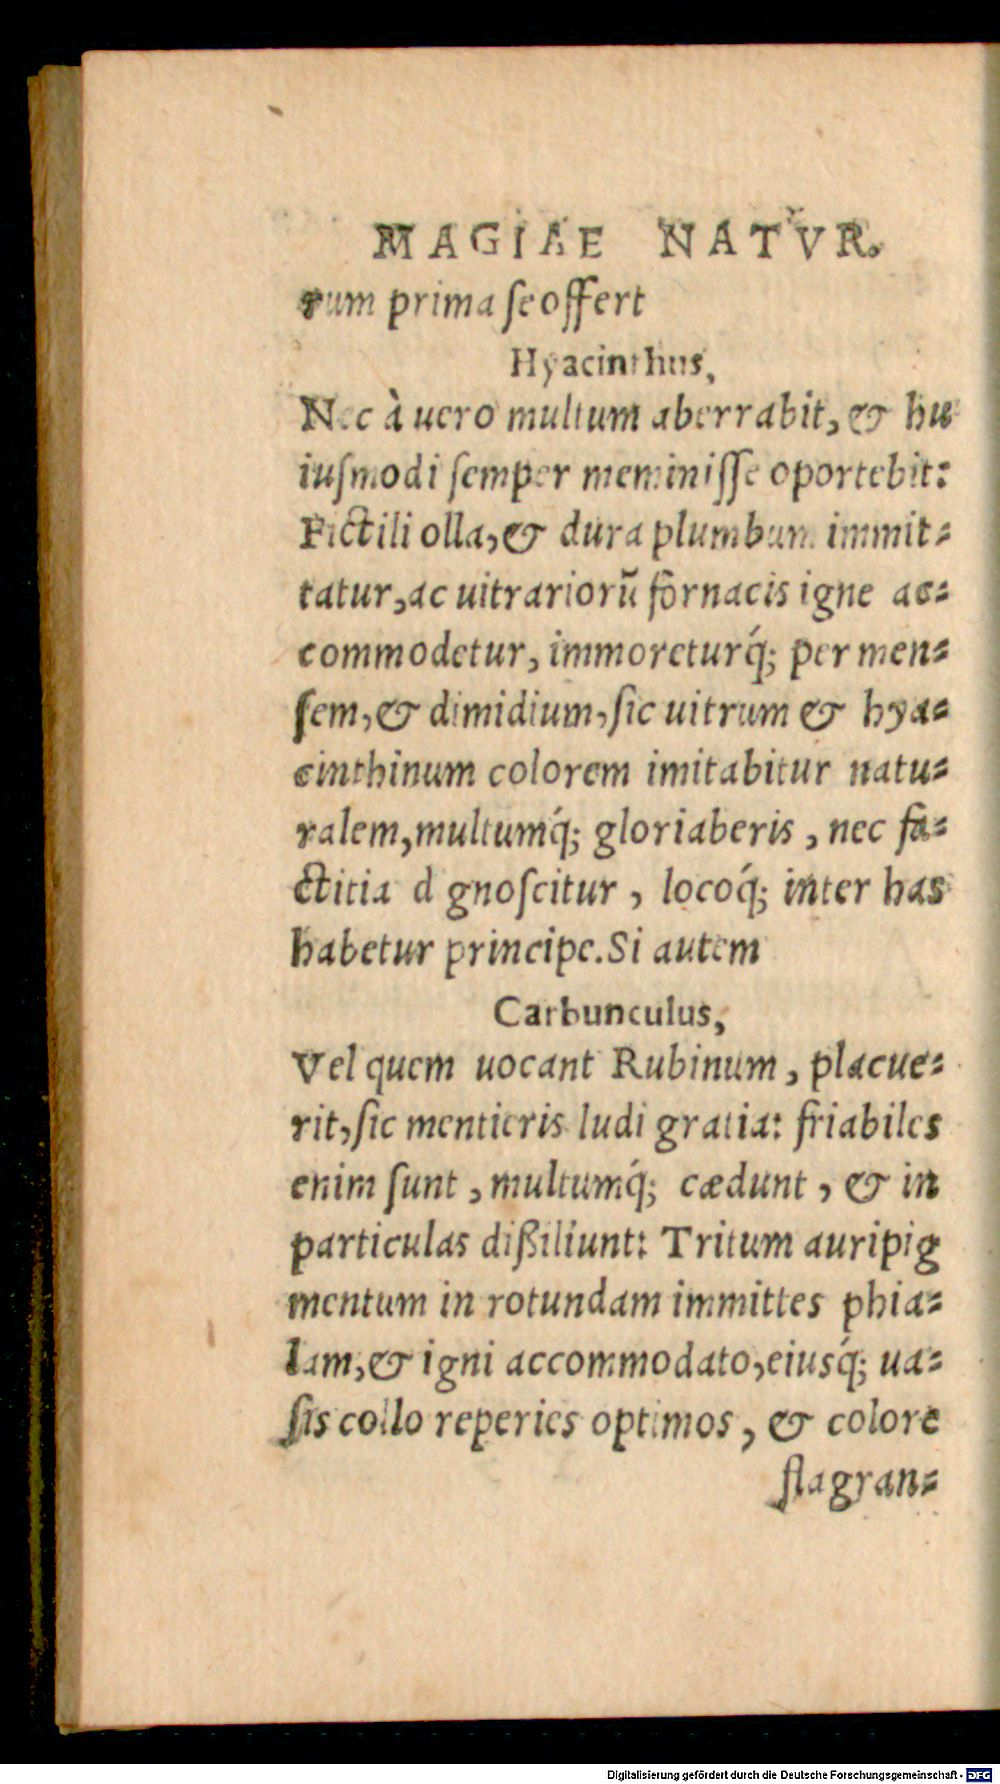 MAGIAE NATVR.
rum prima ſe offert
Hyacinthus,
Nec à uero multum aberrabit, & hu
iuſmodi ſemper meminiſſe oportebit:
Fictili olla, & dura plumbum immit⸗
tatur, ac uitrariorũ fornacis igne ac⸗
commodetur, immoreturq́; per men⸗
ſem, & dimidium, ſic uitrum & hya⸗
cinthinum colorem imitabitur natu⸗
ralem, multumq́; gloriaberis, nec fa⸗
ctitia dignoſcitur, locoq́; inter has
habetur principe. Si autem
Carbunculus,
Vel quem uocant Rubinum, placue⸗
rit, ſic mentieris ludi gratia: friabiles
enim ſunt, multumq́; cædunt, & in
particulas dißiliunt: Tritum auripig
mentum in rotundam immittes phia⸗
lam, & igni accommodato, eiusq́; ua⸗
ſis collo reperies optimos, & colore
flagran⸗
Digitalisierung gefördert durch die Deutsche Forschungsgemeinschaft - DFG